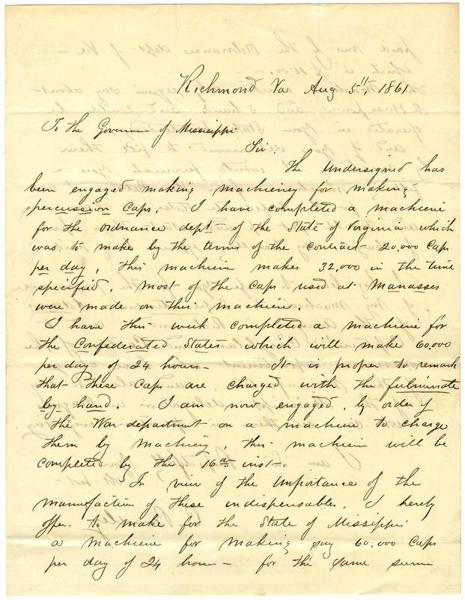 Richmond Va Aug 5th, 1861
To the Governor of Mississippi
Sir:
The Undersigned has
been engaged making machinery for making
percussion Caps. I have completed a machine
for the Ordnance dept of the State of Virginia which
was to make by the terms of the contract 20,000 Caps
per day, this machine makes 32,000 in the time
specified, most of the Caps used at Manasses
were made on this machine.
I have this week completed a machine for
the Confederated States which will make 60,000
per day of 24 hours - It is proper to remark
that these Caps are charged with the fulminate
by hand. I am now engaged, by order of
the War department on a machine to charge
them by machinery, this machine will be
completed by the 16th inst -
In view of the Importance of the
manufacture of these indispensables, I hereby
offer to make for the State of Missippi
a machine for making say 60,000 Caps
per day of 24 hours - for the same sum